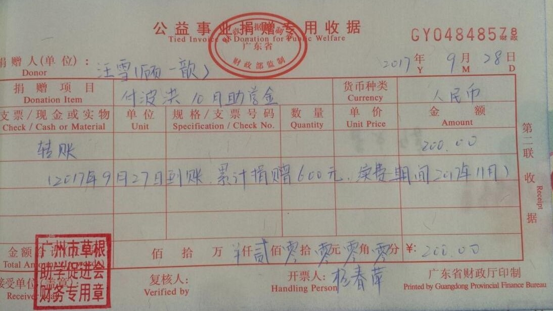 公益事业捐赠专用收据
Tied Invoice Donation for Public Welfare
广东省
财政部监制
GY04848578
捐赠人(单位): 汪雪 2017年 9月 28日
Donor Y M D
捐赠项目 付波芸10月助学金 货币种类 人民币
Donation Item Currency
支票/现金或实物 单位 规格/支票号码 数量 单价 金额
Check / Cash or Material Unit Specification / Check No. Quantity Unit Price Amount
转账 200.00
(2017年9月27日到账 累计捐赠600元、续费期间2017年11月)
第二联 收据
Receipt
金额 佰 拾 万 仟 贰佰 零拾 零元 零角 零分 ¥: 200.00
Total Amount
接受单位 复核人: 开票人: 杨春苹 广东省财政厅印制
Receiver Verified by Handling Person Printed by Guangdong Provincial Finance Bureau
广州市草根
助学促进会
财务专用章